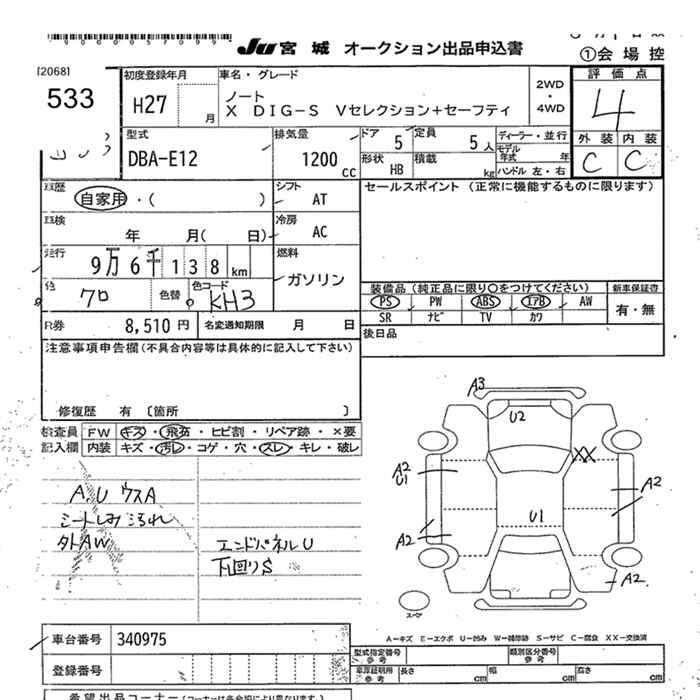 JU 宮城 オークション出品申込書
①会場控
[2068]
533
初度登録年月
H27 月
車名・グレード
ノート
X DIG-S Vセレクション+セーフティ
2WD
・
4WD
評価点
4
外装 内装
C C
型式
DBA-E12
排気量
1200 CC
ドア 5
定員 5人
形状 HB
積載 kg
ディーラー・並行
モデル年式 年
ハンドル 左・右
車歴
自家用・( )
シフト
AT
セールスポイント (正常に機能するものに限ります)
車検
年 月( 日)
冷房
AC
走行
9万6千138km
燃料
ガソリン
色
クロ
色替
色コード
KH3
装備品 (純正品に限り○をつけてください)
新車保証書
PS PW ABS エアB AW
有・無
SR ナビ TV カワ
R券 8,510円
名変通知期限 月 日
後日品
注意事項申告欄 (不具合内容等は具体的に記入して下さい)
修復歴 有 [箇所 ]
検査員記入欄
FW キズ・飛石・ヒビ割・リペア跡・×要
内装 キズ・汚レ・コゲ・穴・スレ・キレ・破レ
A.U ウスA
シートしみ よごれ
外AW
エンドパネルU
下回りS
A3
U2
XX
A2
U1
A2
A2
U1
A2
スペア
A-キズ E-エクボ U-凹み W-補修跡 S-サビ C-腐食 XX-交換済
車台番号 340975
登録番号
型式指定番号 参考
類別区分番号 参考
車庫証明用 参考
長さ cm 幅 cm 高さ cm
希望出品コーナー